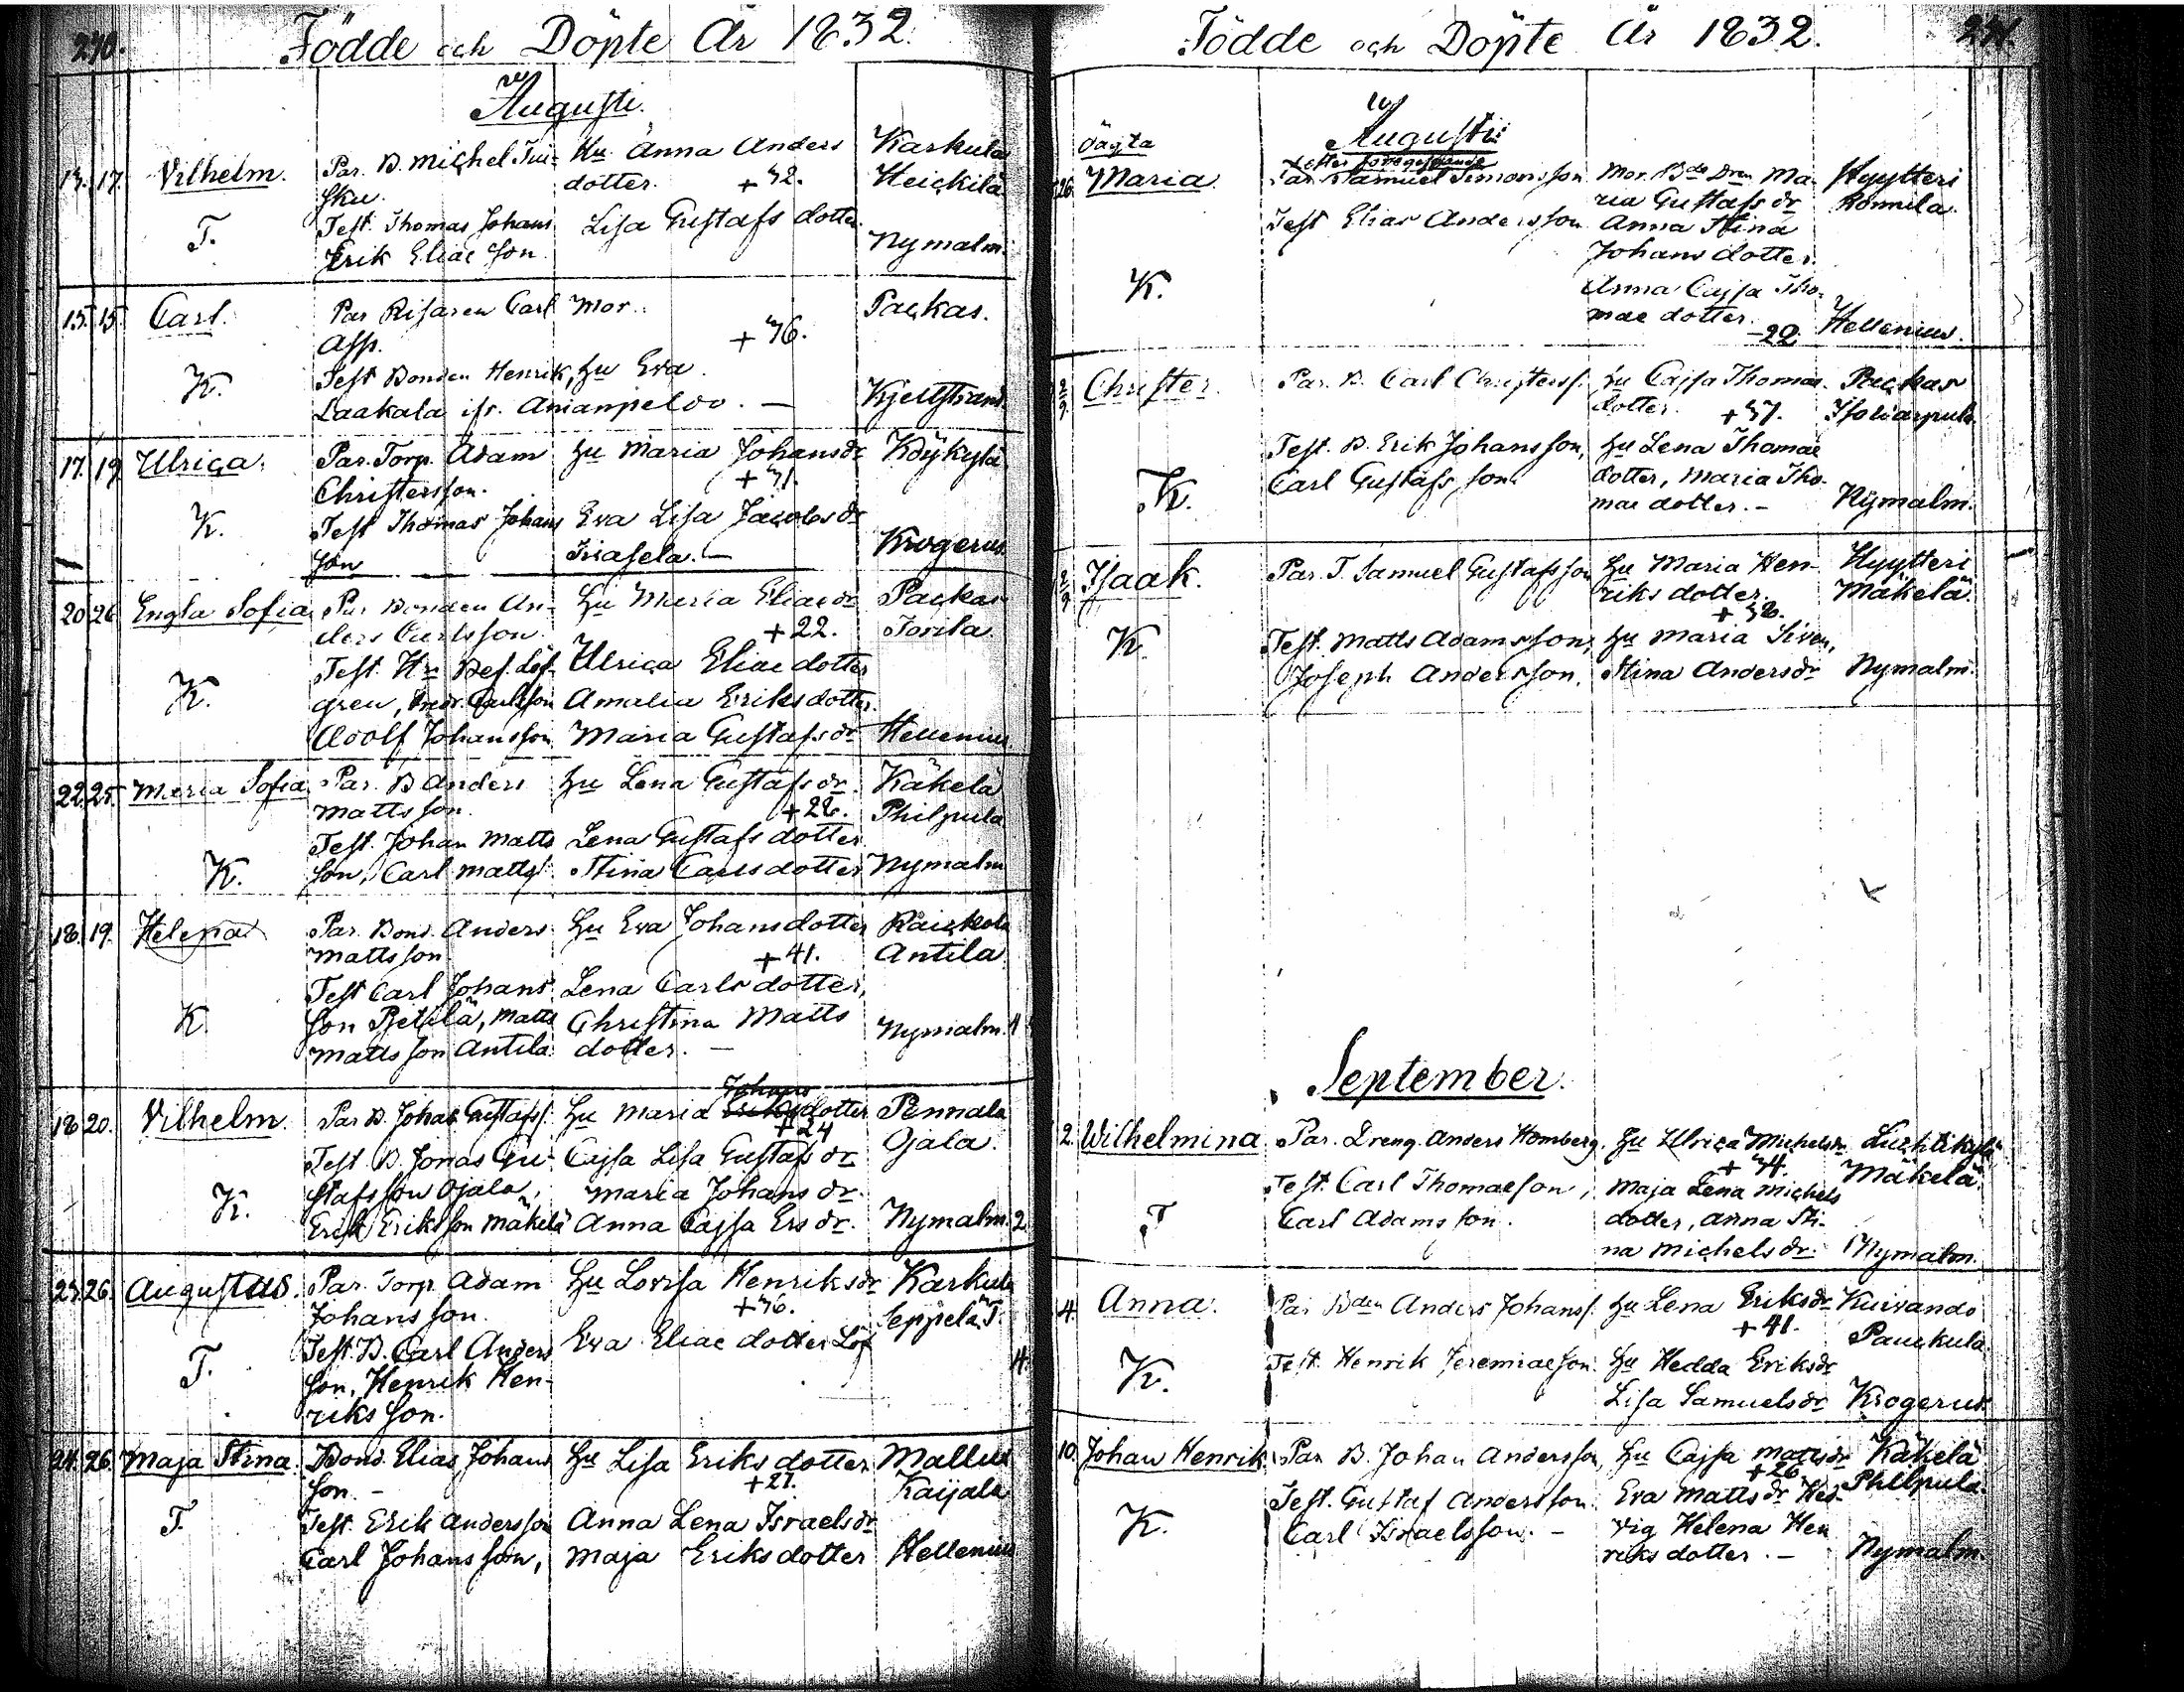 270.
Födde och Döpte År 1832.
Augusti.
13. 17. Vilhelm. Par. B. Michel Tui- Hu Anna Anders Karkula
sku. dotter. + 32. Heickilä
T. Test. Thomas Johans Lisa Gustafs dotter
Erik Eliæ son Nymalm.
15. 15. Carl. Par Risaren Carl Mor. Packas.
Asp. + 36.
K. Test Bonden Henrik, hu Eva
Laakala ifr. —
Kjellstrand.
17. 19 Ulrica. Par. Torp. Adam hu Maria Johansdr Köykylä
Christersson. + 31.
K. Test Thomas Johans Eva Lisa Jacobsdr
son Iriasela. — Krogerus.
20 26 Engla Sofia Par Bonden An- hu Maria Eliædr Packas
ders Carlsson. + 22. Torila
Test. Hr Bef. Löf- Ulrica Eliæ dotter
K. gren, Fredr. Carlsson Amalia Eriksdotter
Adolf Johansson Maria Gustafsdr Hellenius.
22. 25. Maria Sofia Par. B Anders hu Lena Gustafsdr Käkelä
Mattsson. + 28. Philpula
Test. Johan Matts Lena Gustafs dotter
K. son, Carl Matts: Stina Carlsdotter Nymalm
18. 19. Helena Par. Bond. Anders hu Eva Johansdotter Raickola
Mattsson + 41. Antila
Test Carl Johans Lena Carlsdotter,
K son Pietilä, Matts Christina Matts Nymalm. 1
Mattsson Antila dotter. —
Johans
18 20. Vilhelm. Par B. Johan Gustafs: hu Maria Eriksdotter Pennala
+ 24 Ojala.
Test. B. Jonas Gu- Cajsa Lisa Gustafsdr
K. stafsson Ojala, Maria Johansdr.
Erik Eriksson Mäkelä Anna Cajsa Ersdr. Nymalm. 2
23. 26. Augustus. Par. Torp. Adam hu Lovisa Henriksdr Karkula
Johansson. + 36. Seppelä T.
T. Test. B. Carl Anders Eva Eliæ dotter Löf
son, Henrik Hen-
riksson.
24. 26. Maja Stina. Bond. Elias Johans hu Lisa Eriksdotter Mallus
son. — + 27. Kaijala
T. Test. Erik Andersson Anna Lena Israelsdr
Carl Johansson, Maja Eriksdotter Hellenius
Födde och Döpte År 1832. 271.
Augusti
oägta
26. Maria. Par. Samuel Simonsson Mor. Bde Dren Ma- Hyytteri
ria Gustafsdr Ronnila.
Test Elias Andersson Anna Stina
Johans dotter.
K. Anna Cajsa Tho-
mæ dotter. Hellenius.
22.
2/9 Christer. Par. B. Carl Christerss. hu Cajsa Thomæ- Packas
dotter. + 37.
Test. B. Erik Johansson, hu Lena Thomæ
K. Carl Gustafs son. dotter, Maria Tho-
mæ dotter. — Nymalm.
2/9 Isaak. Par. T. Samuel Gustafsson hu Maria Hen- Hyytteri
riks dotter. Mäkelä.
+ 38.
K. Test. Matts Adamsson, hu Maria Siven,
Joseph Andersson. Stina Andersdr Nymalm.
September.
2. Wilhelmina Par. Dreng. Anders Homberg. hu Ulrica Michelsdr
+ 34. Mäkelä.
Test. Carl Thomæson, Maja Lena Michels
T Carl Adamsson. dotter, Anna Sti-
na Michelsdr. Nymalm.
4. Anna. Par Bden Anders Johanss. hu Lena Eriksdr Kuivando
+ 41. Pauckula.
K. Test. Henrik Jeremiæson hu Hedda Eriksdr
Lisa Samuelsdr Krogerus.
10. Johan Henrik Par B. Johan Andersson, hu Cajsa Mattsdr Käkelä
+ 26. Philpula.
Test. Gustaf Andersson Eva Mattsdr Hed-
K. Carl Israelsson. — vig Helena Hen
riksdotter. — Nymalm.